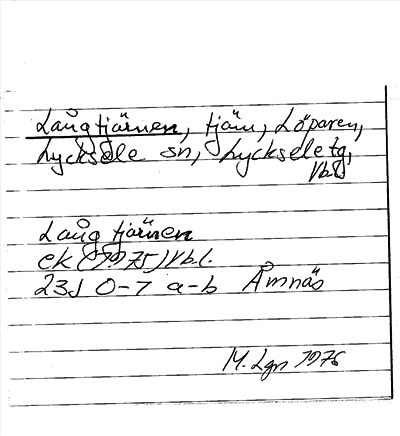 Långtjärnen, tjärn, Löparen,
Lycksele sn, Lycksele tg,
Vbl.
Långtjärnen
ek (1975) Vb.l.
23J 0-7 a-b Åmnäs
M. Lgn 1976